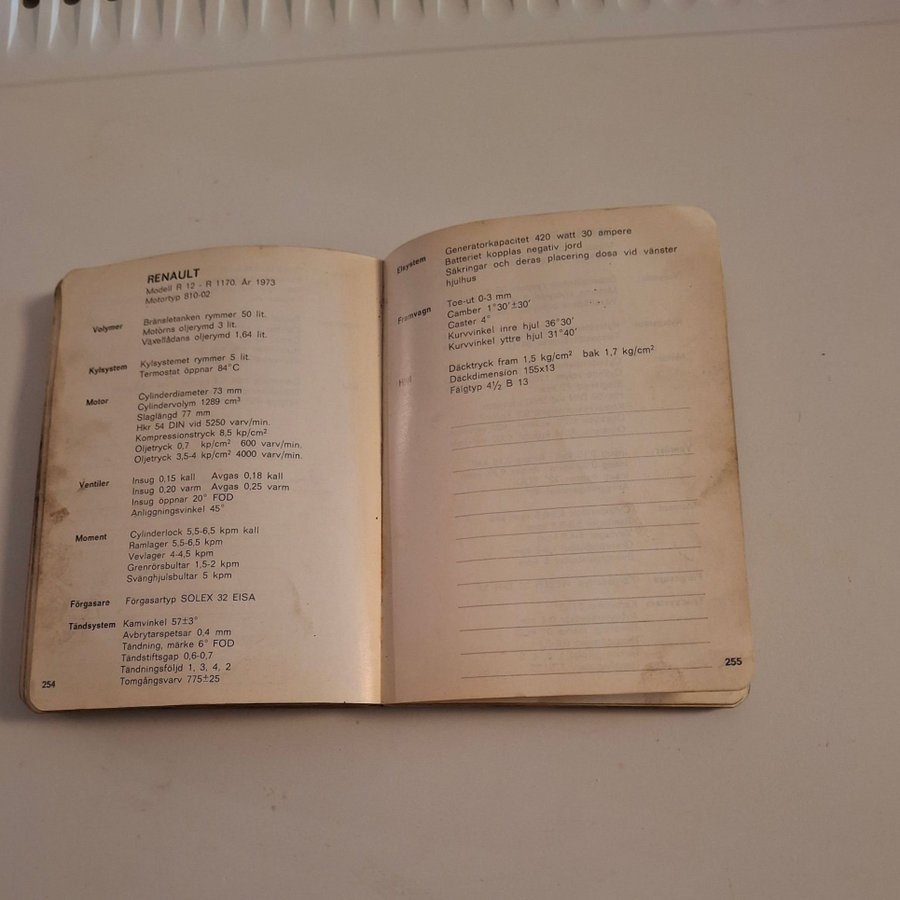 RENAULT
Modell R 12 - R 1170. År 1973
Motortyp 810-02
Volymer Bränsletanken rymmer 50 lit.
Motorns oljerymd 3 lit.
Växellådans oljerymd 1,64 lit.
Kylsystem Kylsystemet rymmer 5 lit.
Termostat öppnar 84°C
Motor Cylinderdiameter 73 mm
Cylindervolym 1289 cm³
Slaglängd 77 mm
Hkr 54 DIN vid 5250 varv/min.
Kompressionstryck 8,5 kp/cm²
Oljetryck 0,7 kp/cm² 600 varv/min.
Oljetryck 3,5-4 kp/cm² 4000 varv/min.
Ventiler Insug 0,15 kall Avgas 0,18 kall
Insug 0,20 varm Avgas 0,25 varm
Insug öppnar 20° FÖD
Anliggningsvinkel 45°
Moment Cylinderlock 5,5-6,5 kpm kall
Ramlager 5,5-6,5 kpm
Vevlager 4-4,5 kpm
Grenrörsbultar 1,5-2 kpm
Svänghjulsbultar 5 kpm
Förgasare Förgasartyp SOLEX 32 EISA
Tändsystem Kamvinkel 57±3°
Avbrytarspetsar 0,4 mm
Tändning, märke 6° FÖD
Tändstiftsgap 0,6-0,7
Tändningsföljd 1, 3, 4, 2
Tomgångsvarv 775±25
254
Elsystem Generatorkapacitet 420 watt 30 ampere
Batteriet kopplas negativ jord
Säkringar och deras placering dosa vid vänster
hjulhus
Framvagn Toe-ut 0-3 mm
Camber 1°30'±30'
Caster 4°
Kurvvinkel inre hjul 36°30'
Kurvvinkel yttre hjul 31°40'
Hjul Däcktryck fram 1,5 kg/cm² bak 1,7 kg/cm²
Däckdimension 155x13
Fälgtyp 4½ B 13
255